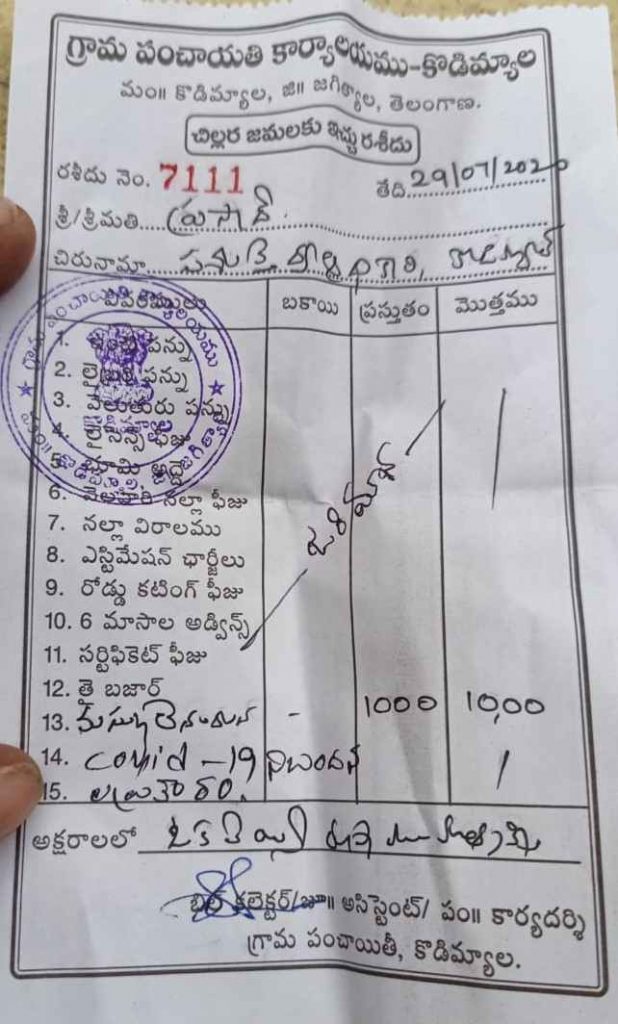 గ్రామ పంచాయతి కార్యాలయము-కొడిమ్యాల
మం॥ కొడిమ్యాల, జి॥ జగిత్యాల, తెలంగాణ.
చిల్లర జమలకు ఇచ్చు రశీదు
రశీదు నెం. 7111 తేది. 29/07/2020
శ్రీ/శ్రీమతి ప్రసాద్.
చిరునామా
వివరములు బకాయి ప్రస్తుతం మొత్తము
1. ఇంటి పన్ను
2. లైటు పన్ను
3. పన్ను
4. లైసెన్స్ ఫీజు
5. భూమి అద్దె
6. నెలవారి నల్లా ఫీజు
7. నల్లా విరాలము
8. ఎస్టిమేషన్ ఛార్జీలు
9. రోడ్డు కటింగ్ ఫీజు
10. 6 మాసాల అడ్విన్స్
11. సర్టిఫికెట్ ఫీజు
12. తై బజార్
జరిమానా
13. - 1000 10,00
14. Covid -19 నిబంధన
15. ప్రకారం.
అక్షరాలలో ఒక వెయ్యి
బిల్ కలెక్టర్/జూ॥ అసిస్టెంట్/ పం॥ కార్యదర్శి
గ్రామ పంచాయితీ, కొడిమ్యాల.